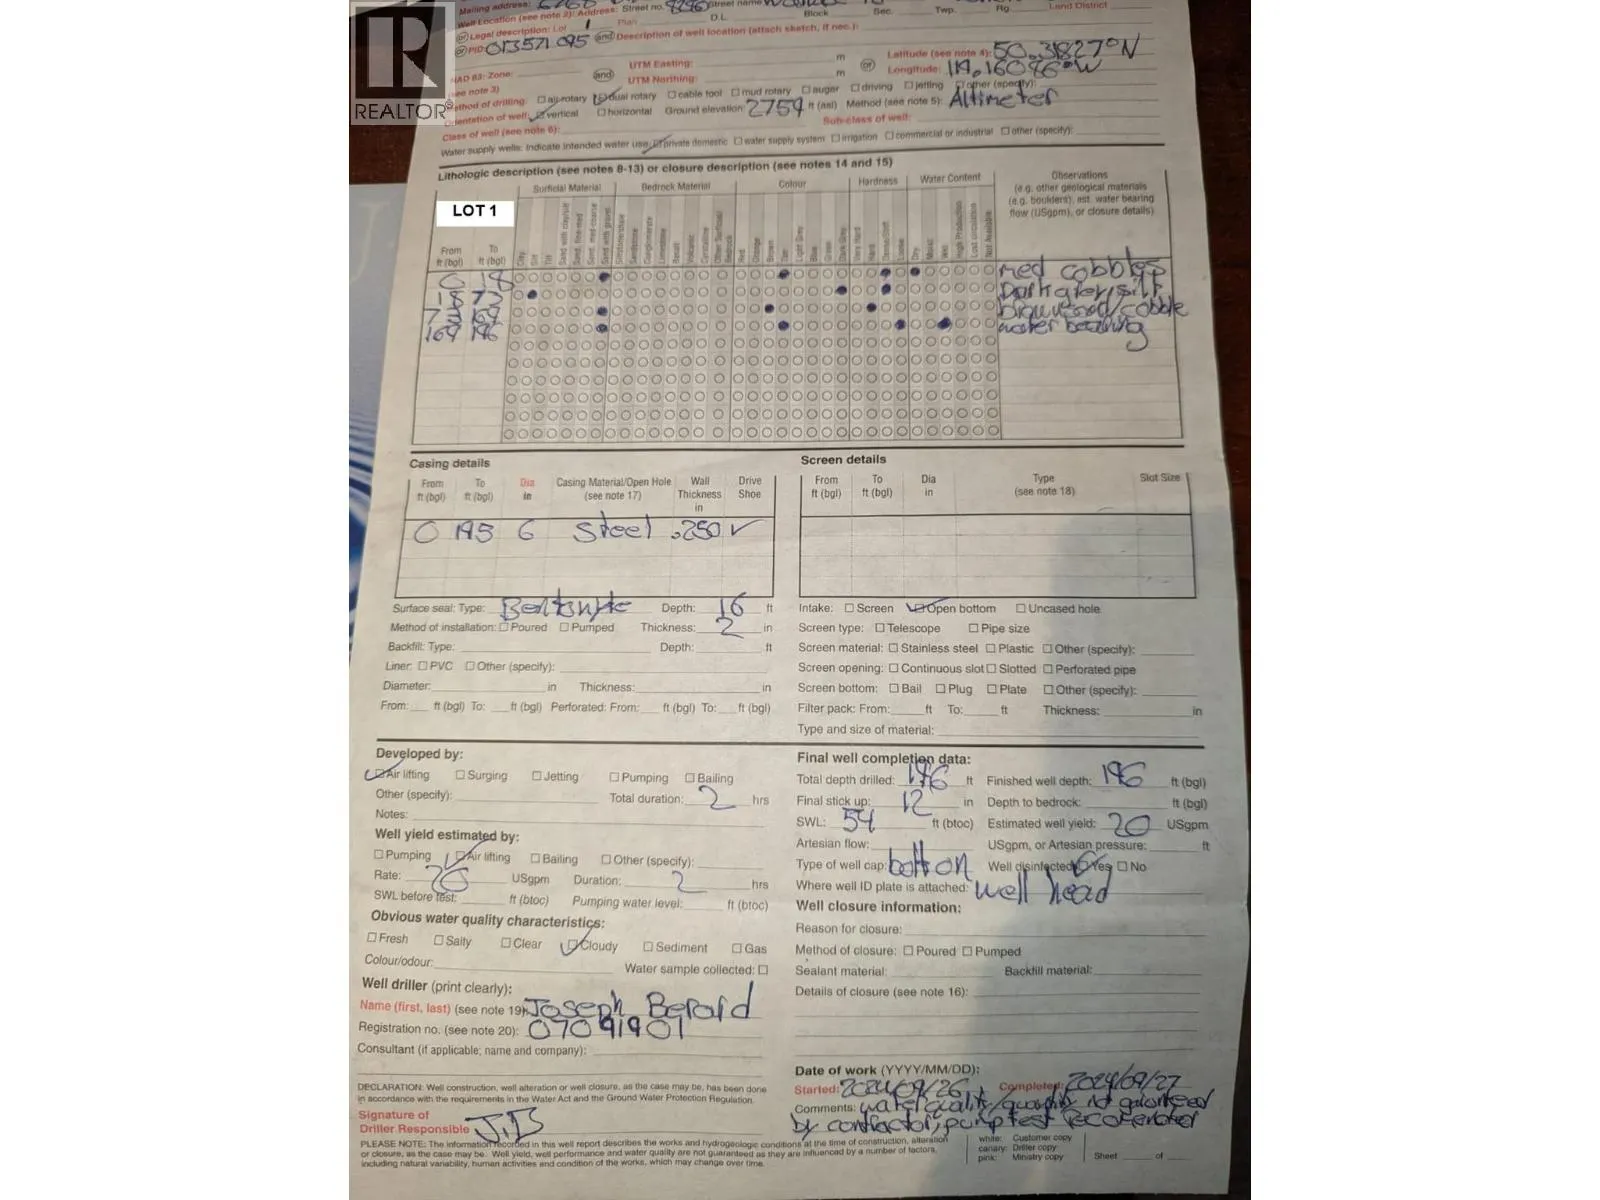 Mailing address:
Well Location (see note 2): Address: Street no. 8296 Street name
or Legal description: Lot 1 Plan D.L. Block Sec. Twp. Rg. Land District
or PID: 013571095 and Description of well location (attach sketch, if nec.):
NAD 83: Zone: and UTM Easting: m or Latitude (see note 4): 50.31827°N
(see note 3) UTM Northing: m Longitude: 119.16086°W
Method of drilling: air rotary dual rotary cable tool mud rotary auger driving jetting other (specify):
Orientation of well: vertical horizontal Ground elevation: 2759 ft (asl) Method (see note 5): Altimeter
Class of well (see note 6): Sub-class of well:
Water supply wells: indicate intended water use: private domestic water supply system irrigation commercial or industrial other (specify):
Lithologic description (see notes 8-13) or closure description (see notes 14 and 15)
Surficial Material Bedrock Material Colour Hardness Water Content Observations
(e.g. other geological materials
(e.g. boulders), est. water bearing
flow (USgpm), or closure details)
LOT 1
From ft (bgl) To ft (bgl)
0 18 med cobbles
18 73 Dark grey/silt
73 169 brown sand/cobble
169 196 water bearing
Casing details
From ft (bgl) To ft (bgl) Dia in Casing Material/Open Hole (see note 17) Wall Thickness in Drive Shoe
0 195 6 Steel .250 ✓
Screen details
From ft (bgl) To ft (bgl) Dia in Type (see note 18) Slot Size
Surface seal: Type: Bentonite Depth: 16 ft
Method of installation: Poured Pumped Thickness: 2 in
Backfill: Type: Depth: ft
Liner: PVC Other (specify):
Diameter: in Thickness: in
From: ft (bgl) To: ft (bgl) Perforated: From: ft (bgl) To: ft (bgl)
Intake: Screen Open bottom Uncased hole
Screen type: Telescope Pipe size
Screen material: Stainless steel Plastic Other (specify):
Screen opening: Continuous slot Slotted Perforated pipe
Screen bottom: Bail Plug Plate Other (specify):
Filter pack: From: ft To: ft Thickness: in
Type and size of material:
Developed by:
Air lifting Surging Jetting Pumping Bailing
Other (specify): Total duration: 2 hrs
Notes:
Well yield estimated by:
Pumping Air lifting Bailing Other (specify):
Rate: 20 USgpm Duration: 2 hrs
SWL before test: ft (btoc) Pumping water level: ft (btoc)
Obvious water quality characteristics:
Fresh Salty Clear Cloudy Sediment Gas
Colour/odour: Water sample collected:
Well driller (print clearly):
Name (first, last) (see note 19): Joseph Berard
Registration no. (see note 20): 07091901
Consultant (if applicable; name and company):
DECLARATION: Well construction, well alteration or well closure, as the case may be, has been done
in accordance with the requirements in the Water Act and the Ground Water Protection Regulation.
Signature of
Driller Responsible J.B
Final well completion data:
Total depth drilled: 196 ft Finished well depth: 196 ft (bgl)
Final stick up: 12 in Depth to bedrock: ft (bgl)
SWL: 54 ft (btoc) Estimated well yield: 20 USgpm
Artesian flow: USgpm, or Artesian pressure: ft
Type of well cap: bolt on Well disinfected: Yes No
Where well ID plate is attached: well head
Well closure information:
Reason for closure:
Method of closure: Poured Pumped
Sealant material: Backfill material:
Details of closure (see note 16):
Date of work (YYYY/MM/DD):
Started: 2024/09/26 Completed: 2024/09/27
Comments: water quality/quantity not guaranteed
by contractor, pump test
PLEASE NOTE: The information recorded in this well report describes the works and hydrogeologic conditions at the time of construction, alteration
or closure, as the case may be. Well yield, well performance and water quality are not guaranteed as they are influenced by a number of factors,
including natural variability, human activities and condition of the works, which may change over time.
white: Customer copy
canary: Driller copy
pink: Ministry copy
Sheet of
REALTOR®